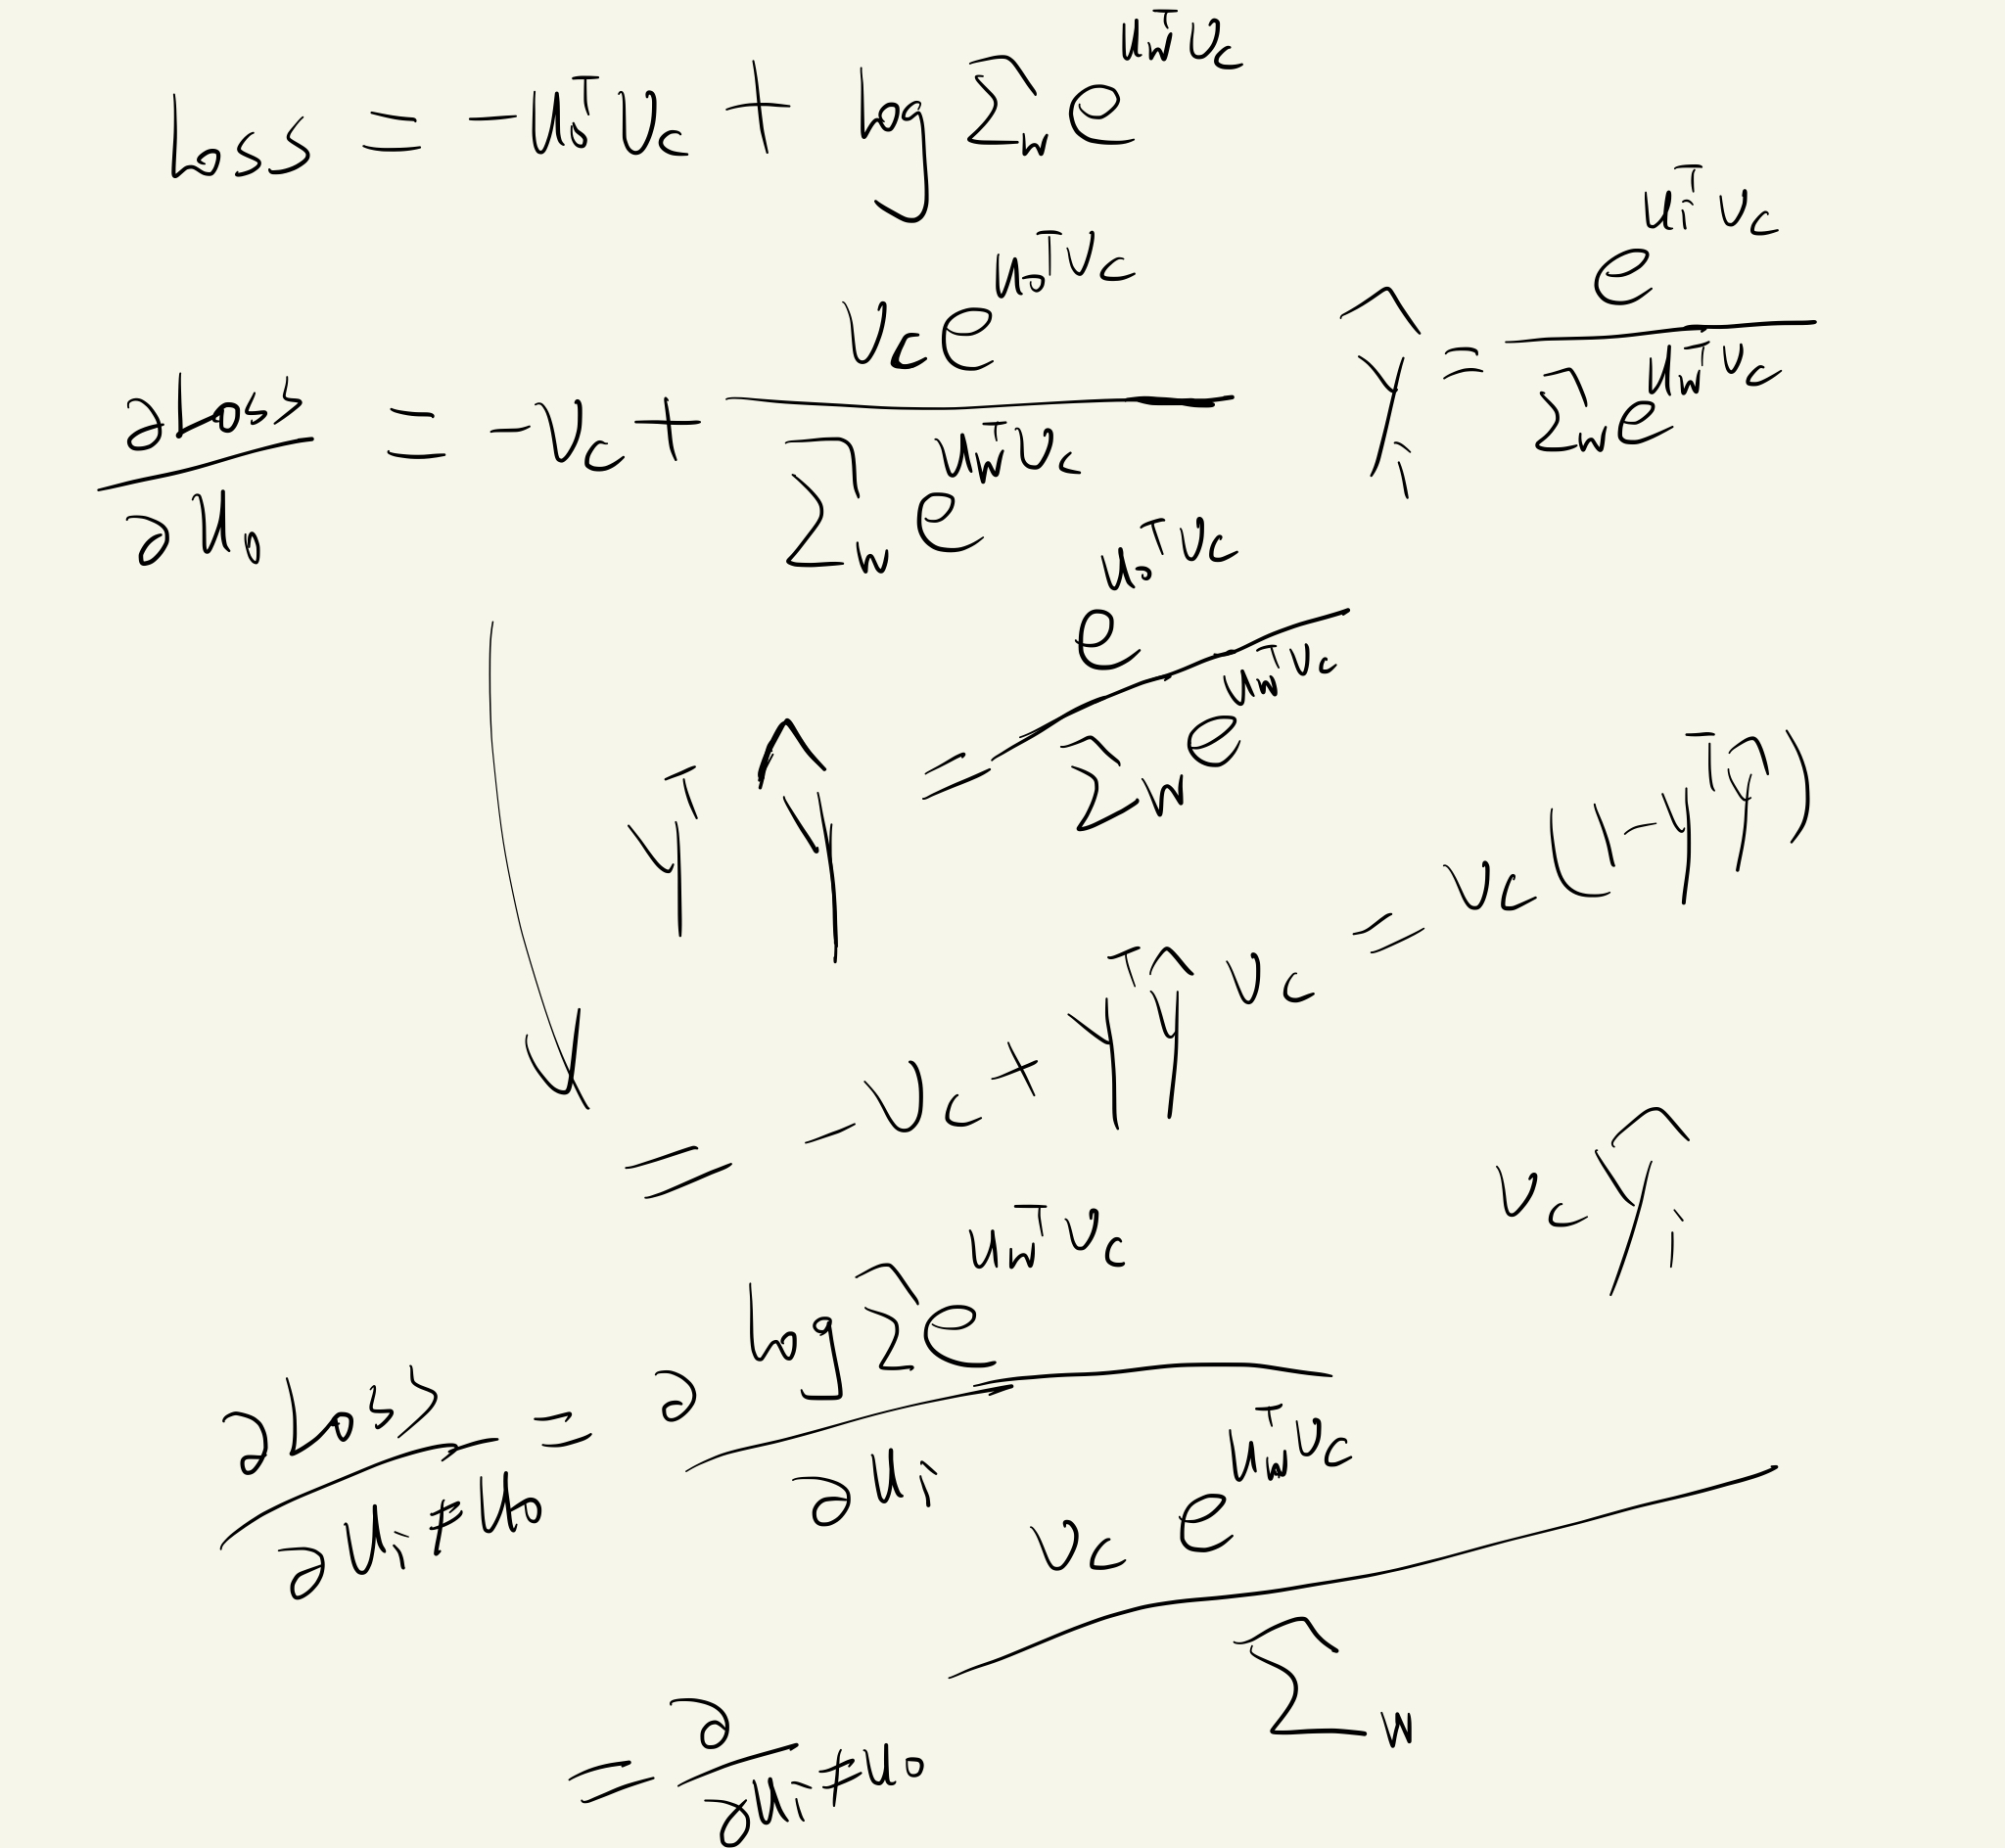 Loss = -u_o^T v_c + log Σ_w e^{u_w^T v_c}
∂Loss/∂u_o = -v_c + (v_c e^{u_o^T v_c})/(Σ_w e^{u_w^T v_c})
ŷ_i = e^{u_i^T v_c}/(Σ_w e^{u_w^T v_c})
y^T ŷ = e^{u_o^T v_c}/(Σ_w e^{u_w^T v_c})
= -v_c + y^T ŷ v_c = v_c(1-y^T ŷ)
v_c ŷ_i
∂Loss/∂u_i≠u_o = ∂ log Σ e^{u_w^T v_c}/∂u_i
= ∂/∂u_i≠u_o (v_c e^{u_w^T v_c})/(Σ_w)